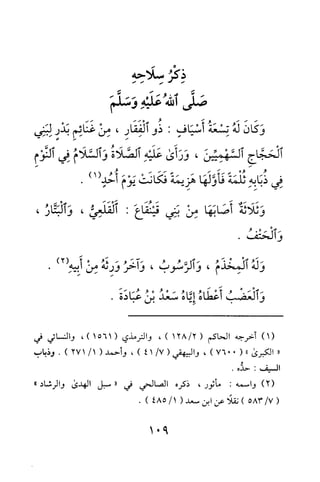 ذِكْرُ سِلَاحِهِ
صَلَّى ٱللهُ عَلَيْهِ وَسَلَّمَ
وَكَانَ لَهُ تِسْعَةُ أَسْيَافٍ : ذُو ٱلْفِقَارِ ، مِنْ غَنَائِمِ بَدْرٍ لِبَنِي
ٱلْحَجَّاجِ ٱلسَّهْمِيِّينَ ، وَرَأَىٰ عَلَيْهِ ٱلصَّلَاةُ وَٱلسَّلَامُ فِي ٱلنَّوْمِ
فِي ذُبَابِهِ ثُلْمَةً فَأَوَّلَهَا هَزِيمَةً فَكَانَتْ يَوْمَ أُحُدٍ(١) .
وَثَلَاثَةٌ أَصَابَهَا مِنْ بَنِي قَيْنُقَاعَ : ٱلْقَلَعِيُّ ، وَٱلْبَتَّارُ ،
وَٱلْحَتْفُ .
وَلَهُ ٱلْمِخْذَمُ ، وَٱلرَّسُوبُ ، وَآخَرُ وَرِثَهُ مِنْ أَبِيهِ(٢) .
وَٱلْعَضْبُ أَعْطَاهُ إِيَّاهُ سَعْدُ بْنُ عُبَادَةَ .
(١) أخرجه الحاكم ( ١٢٨/٢ ) ، والترمذي ( ١٥٦١ ) ، والنسائي في
« الكبرىٰ » ( ٧٦٠٠ ) ، والبيهقي ( ٤١/٧ ) ، وأحمد ( ٢٧١/١ ) . وذباب
السيف : حدُّه .
(٢) واسمه : مأثور ، ذكره الصالحي في « سبل الهدىٰ والرشاد »
( ٥٨٣/٧ ) نقلاً عن ابن سعد ( ٤٨٥/١ ) .
١٠٩